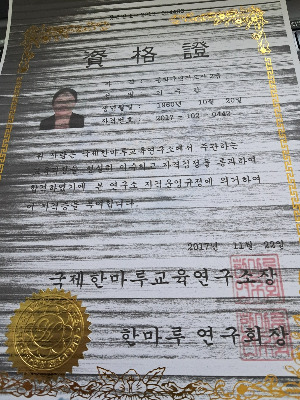 資格證
생년월일 : 1960년 10월 20일
자격번호 : 2017 - 102 - 0442
위 사람은 국제한마루교육연구소에서 주관하는
이수하고 자격검정을 통과하여
합격하였기에 본 연구소 자격운영규정에 의거하여
이 자격증을 수여합니다.
2017년 11월 22일
국제한마루교육연구소장
한마루 연구회장